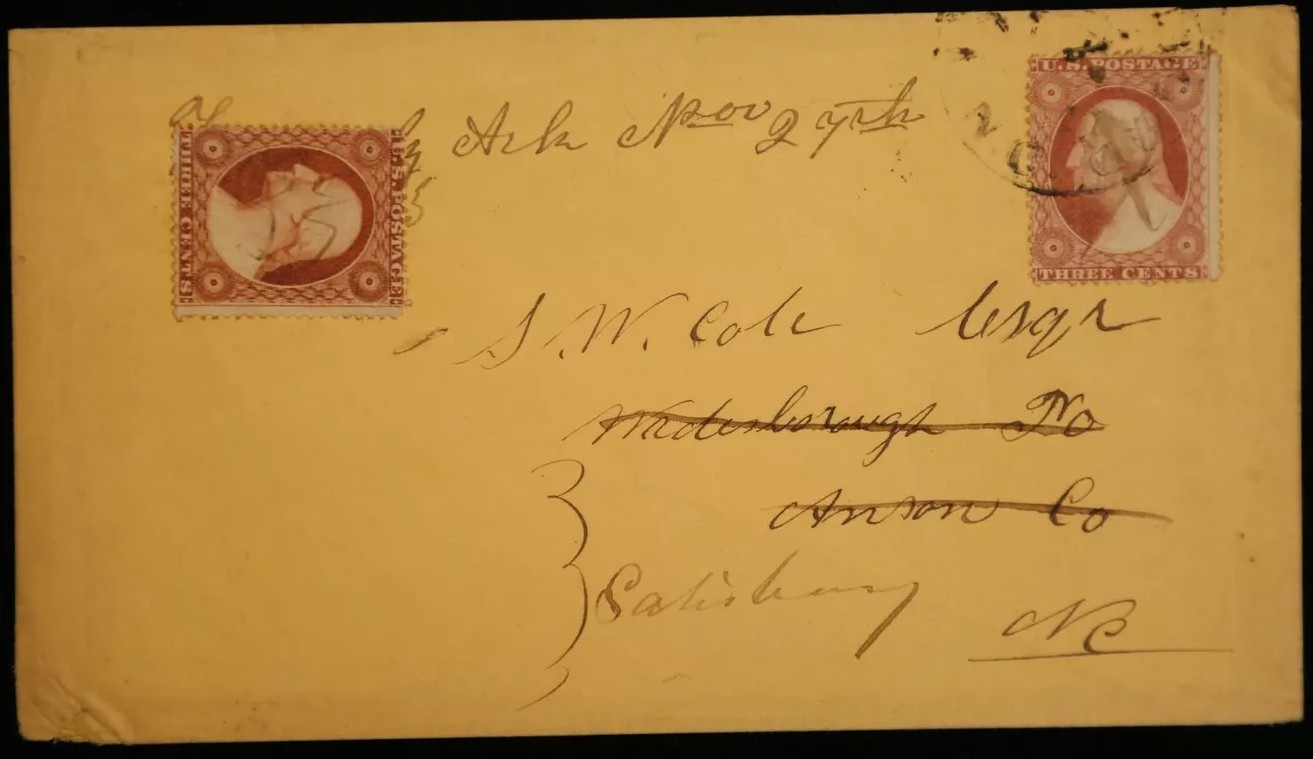 Ark Nov 27th
U.S. POSTAGE
THREE CENTS
U.S. POSTAGE
THREE CENTS
S. W. Cole Esqr
Wadesborough PO
Anson Co
Salisbury
NC